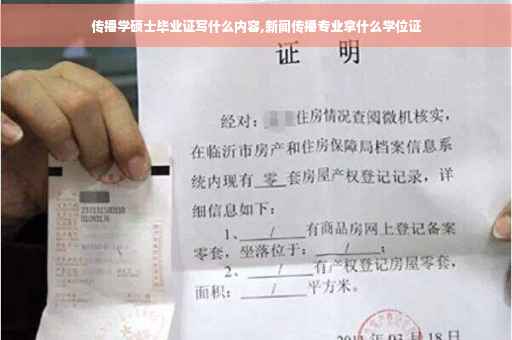 传播学硕士毕业证写什么内容,新闻传播专业拿什么学位证
证 明
经对: 住房情况查阅微机核实,
在临沂市房产和住房保障局档案信息系
统内现有 零 套房屋产权登记记录, 详
细信息如下:
1、 / 有商品房网上登记备案
零套, 坐落位于: / ;
2、 / 有产权登记房屋零套,
面积: / 平方米。
03 月 18 日